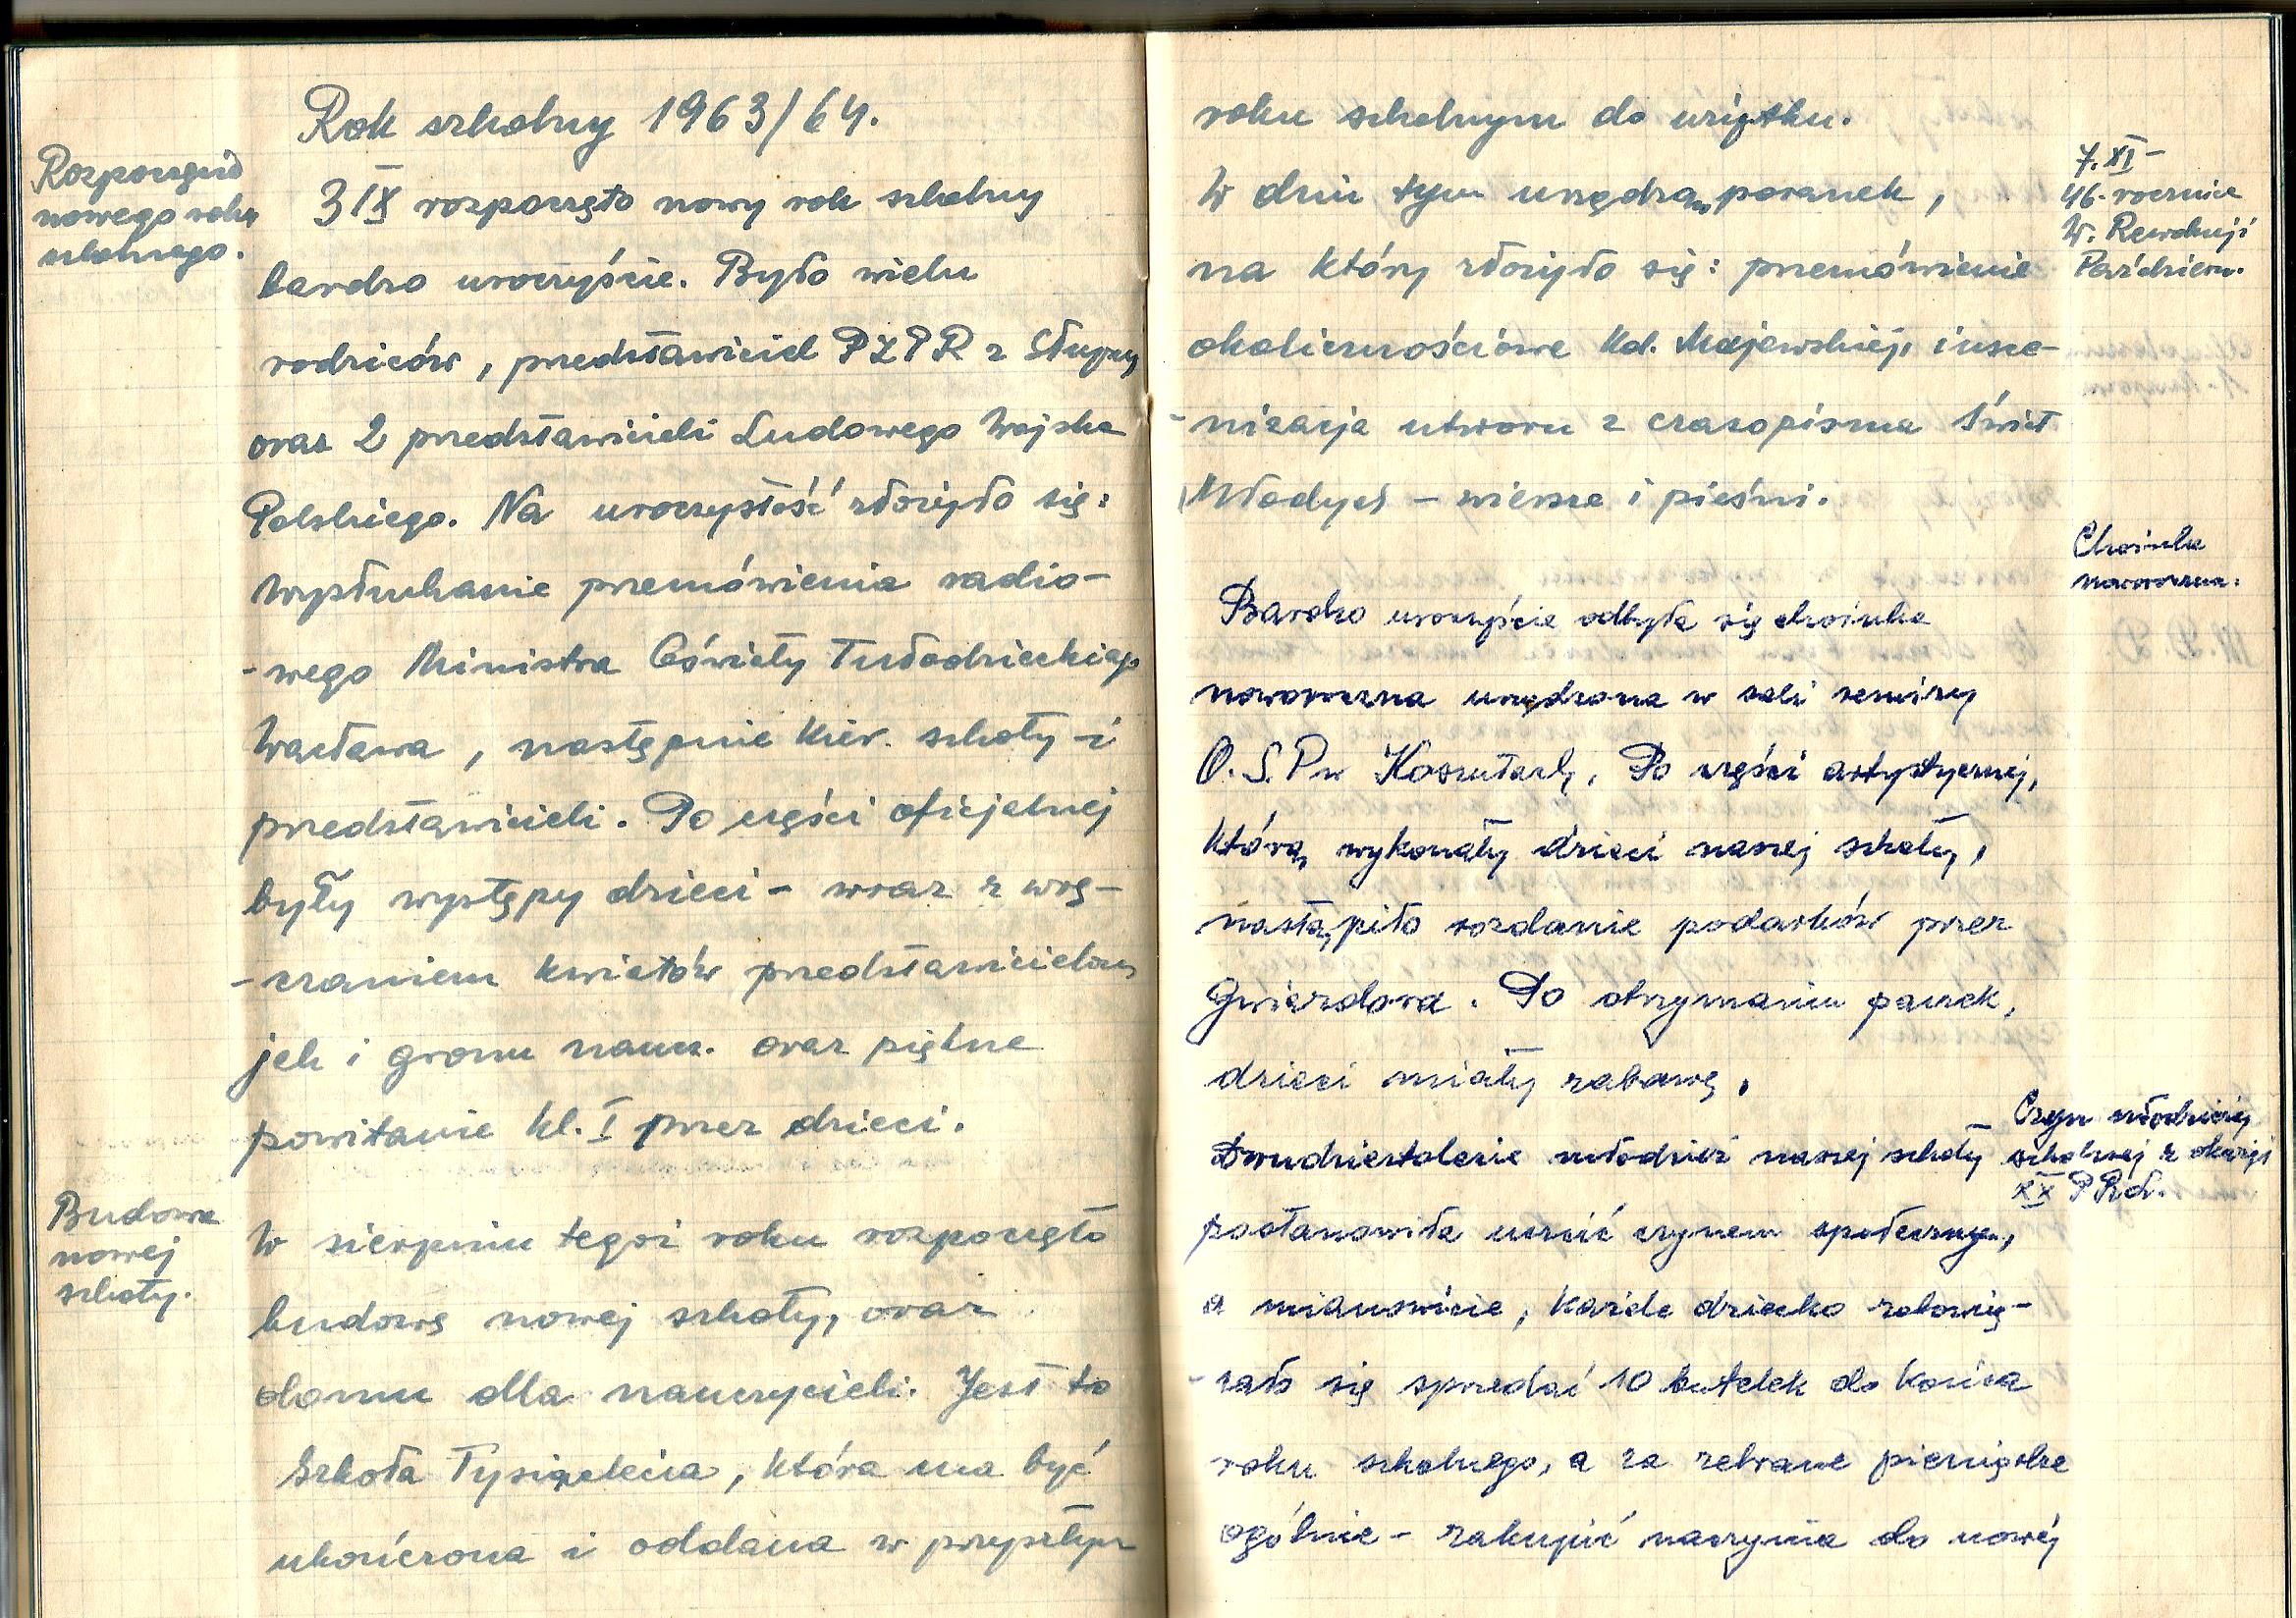 Rok szkolny 1963/64.
Rozpoczęcie
nowego roku
szkolnego.
3 IX rozpoczęto nowy rok szkolny
bardzo uroczyście. Było wielu
rodziców, przedstawiciel PZPR z Słupcy
oraz 2 przedstawicieli Ludowego Wojska
Polskiego. Na uroczystość złożyło się:
wysłuchanie przemówienia radio-
-wego Ministra Oświaty Tułodzieckiego
Wacława, następnie kier. szkoły i
przedstawicieli. Po części oficjalnej
były występy dzieci - wraz z wrę-
-czaniem kwiatów przedstawicielom
jak i gronu naucz. oraz piękne
powitanie kl. I przez dzieci.
Budowa
nowej
szkoły.
W sierpniu tegoż roku rozpoczęto
budowę nowej szkoły, oraz
domu dla nauczycieli. Jest to
Szkoła Tysiąclecia, która ma być
ukończona i oddana w przyszłym
roku szkolnym do użytku.
7.XI -
46-rocznica
W. Rewolucji
Paździer.
W dniu tym urządzono poranek,
na który złożyło się: przemówienie
okolicznościowe kol. Majewskiej, insce-
-nizacja utworu z czasopisma Świat
Młodych - wiersze i pieśni.
Choinka
noworoczna.
Bardzo uroczyście odbyła się choinka
noworoczna urządzona w sali remizy
O.S.P w Koszutach. Po części artystycznej,
którą wykonały dzieci naszej szkoły,
nastąpiło rozdanie podarków przez
Gwiazdora. Po otrzymaniu paczek,
dzieci miały zabawę.
Czyn młodzieży
szkolnej z okazji
XX PRL.
Dwudziestolecie młodzież naszej szkoły
postanowiła uczcić czynem społecznym,
a mianowicie, każde dziecko zobowią-
-zało się sprzedać 10 butelek do końca
roku szkolnego, a za zebrane pieniądze
ogólnie - zakupić naczynia do nowej